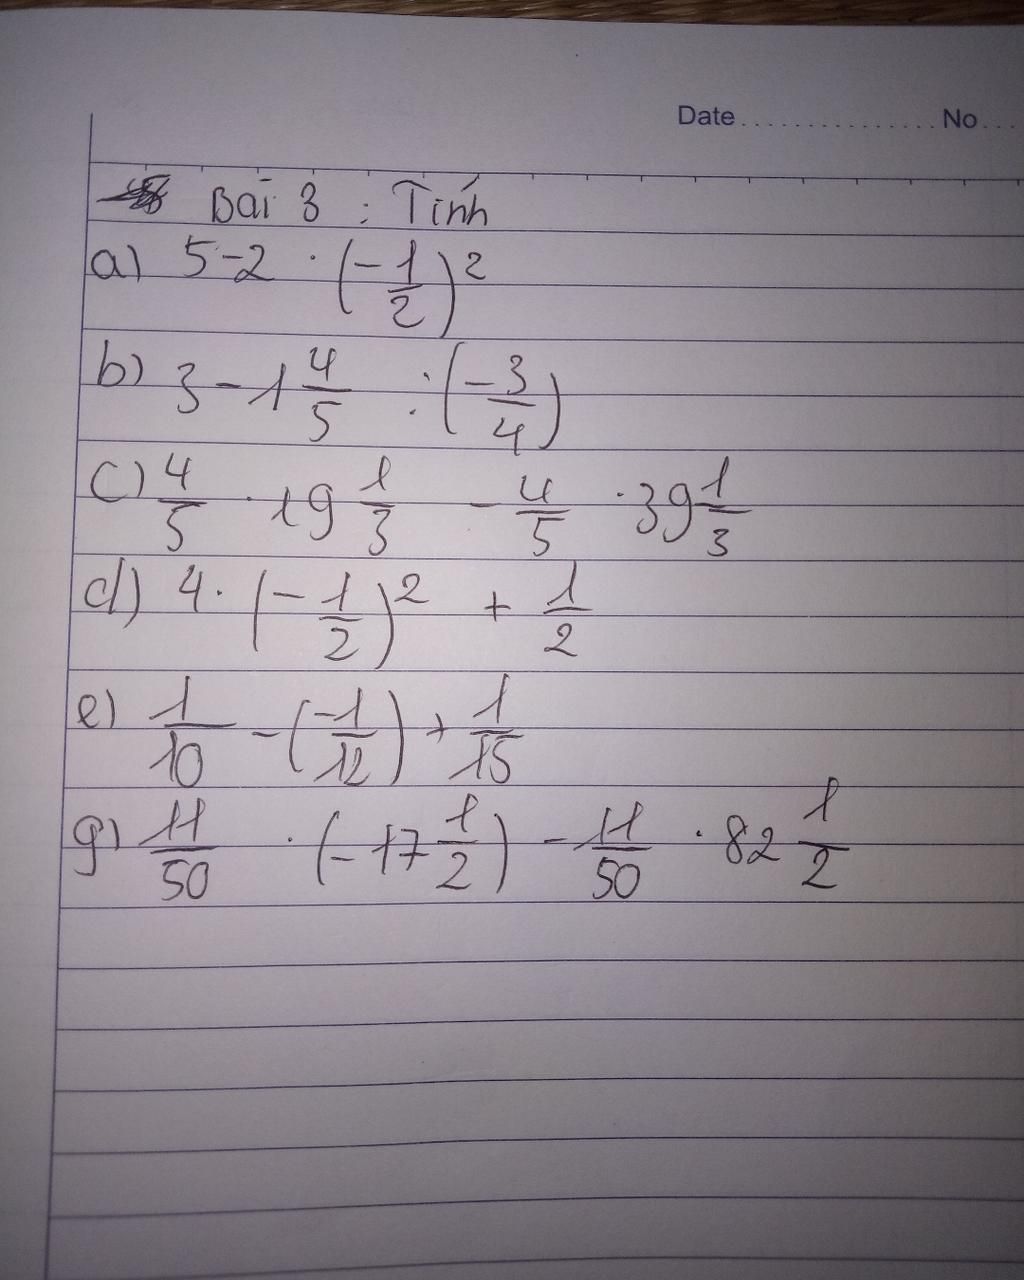 Date............... No...
Bài 3 : Tính
a) 5-2 · (-1/2)²
b) 3 - 1 4/5 : (-3/4)
c) 4/5 · 19 1/3 - 4/5 · 39 1/3
d) 4 · (-1/2)² + 1/2
e) 1/10 - (-1/12) + 1/15
g) 11/50 · (-17 1/2) - 11/50 · 82 1/2